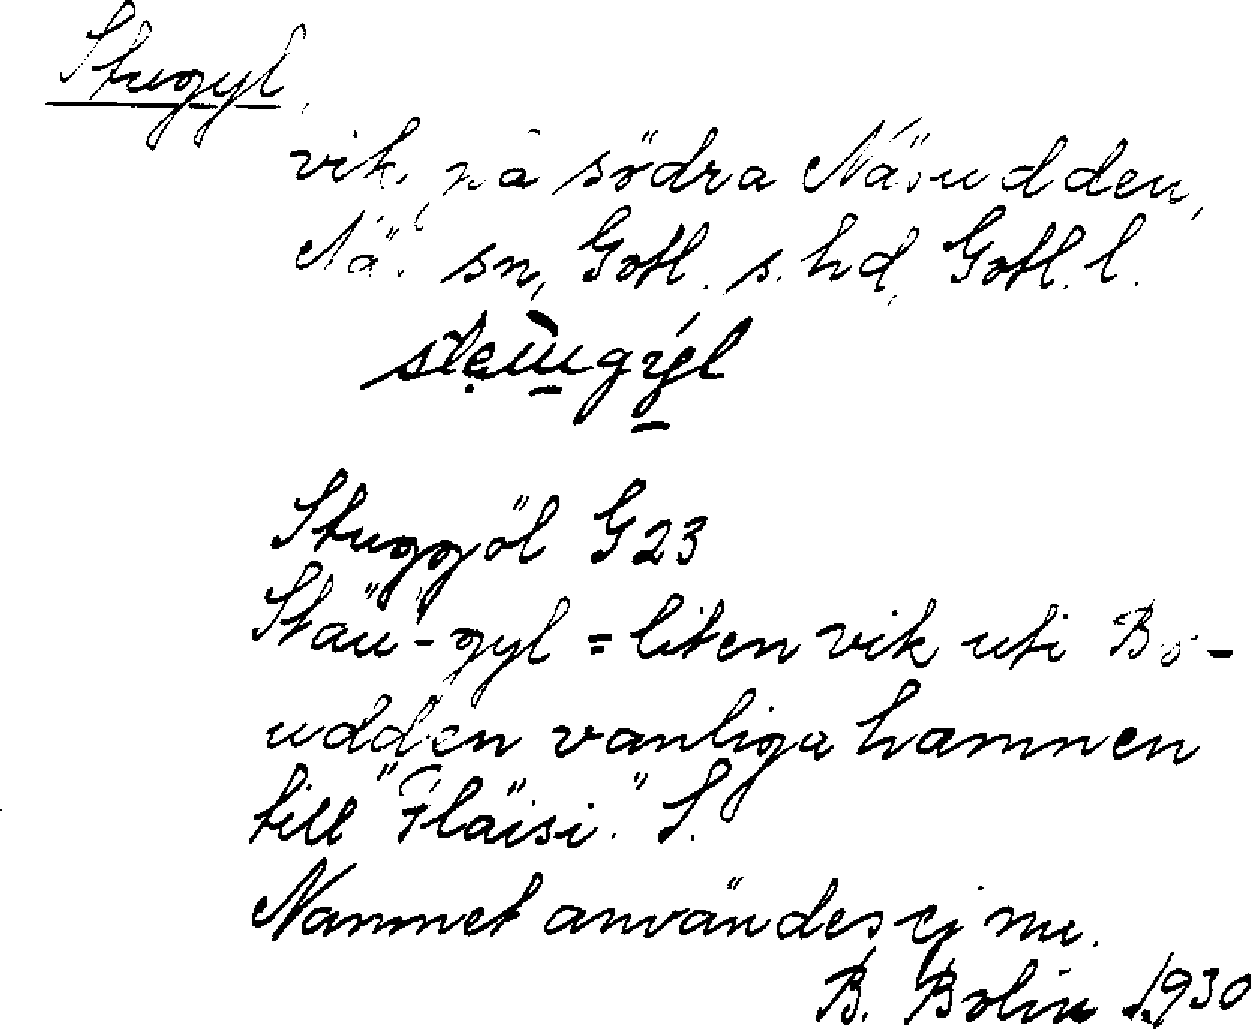 Stugyl.
vik på södra Näsudden,
Nä. sn, Gotl. s. hd, Gotl. l.
Stuggöl G23
Stäu-gyl = liten vik uti Bo-
udden vanliga hamnen
till "Fläisi." S.
Namnet användes ej nu.
B. Bolin 1930